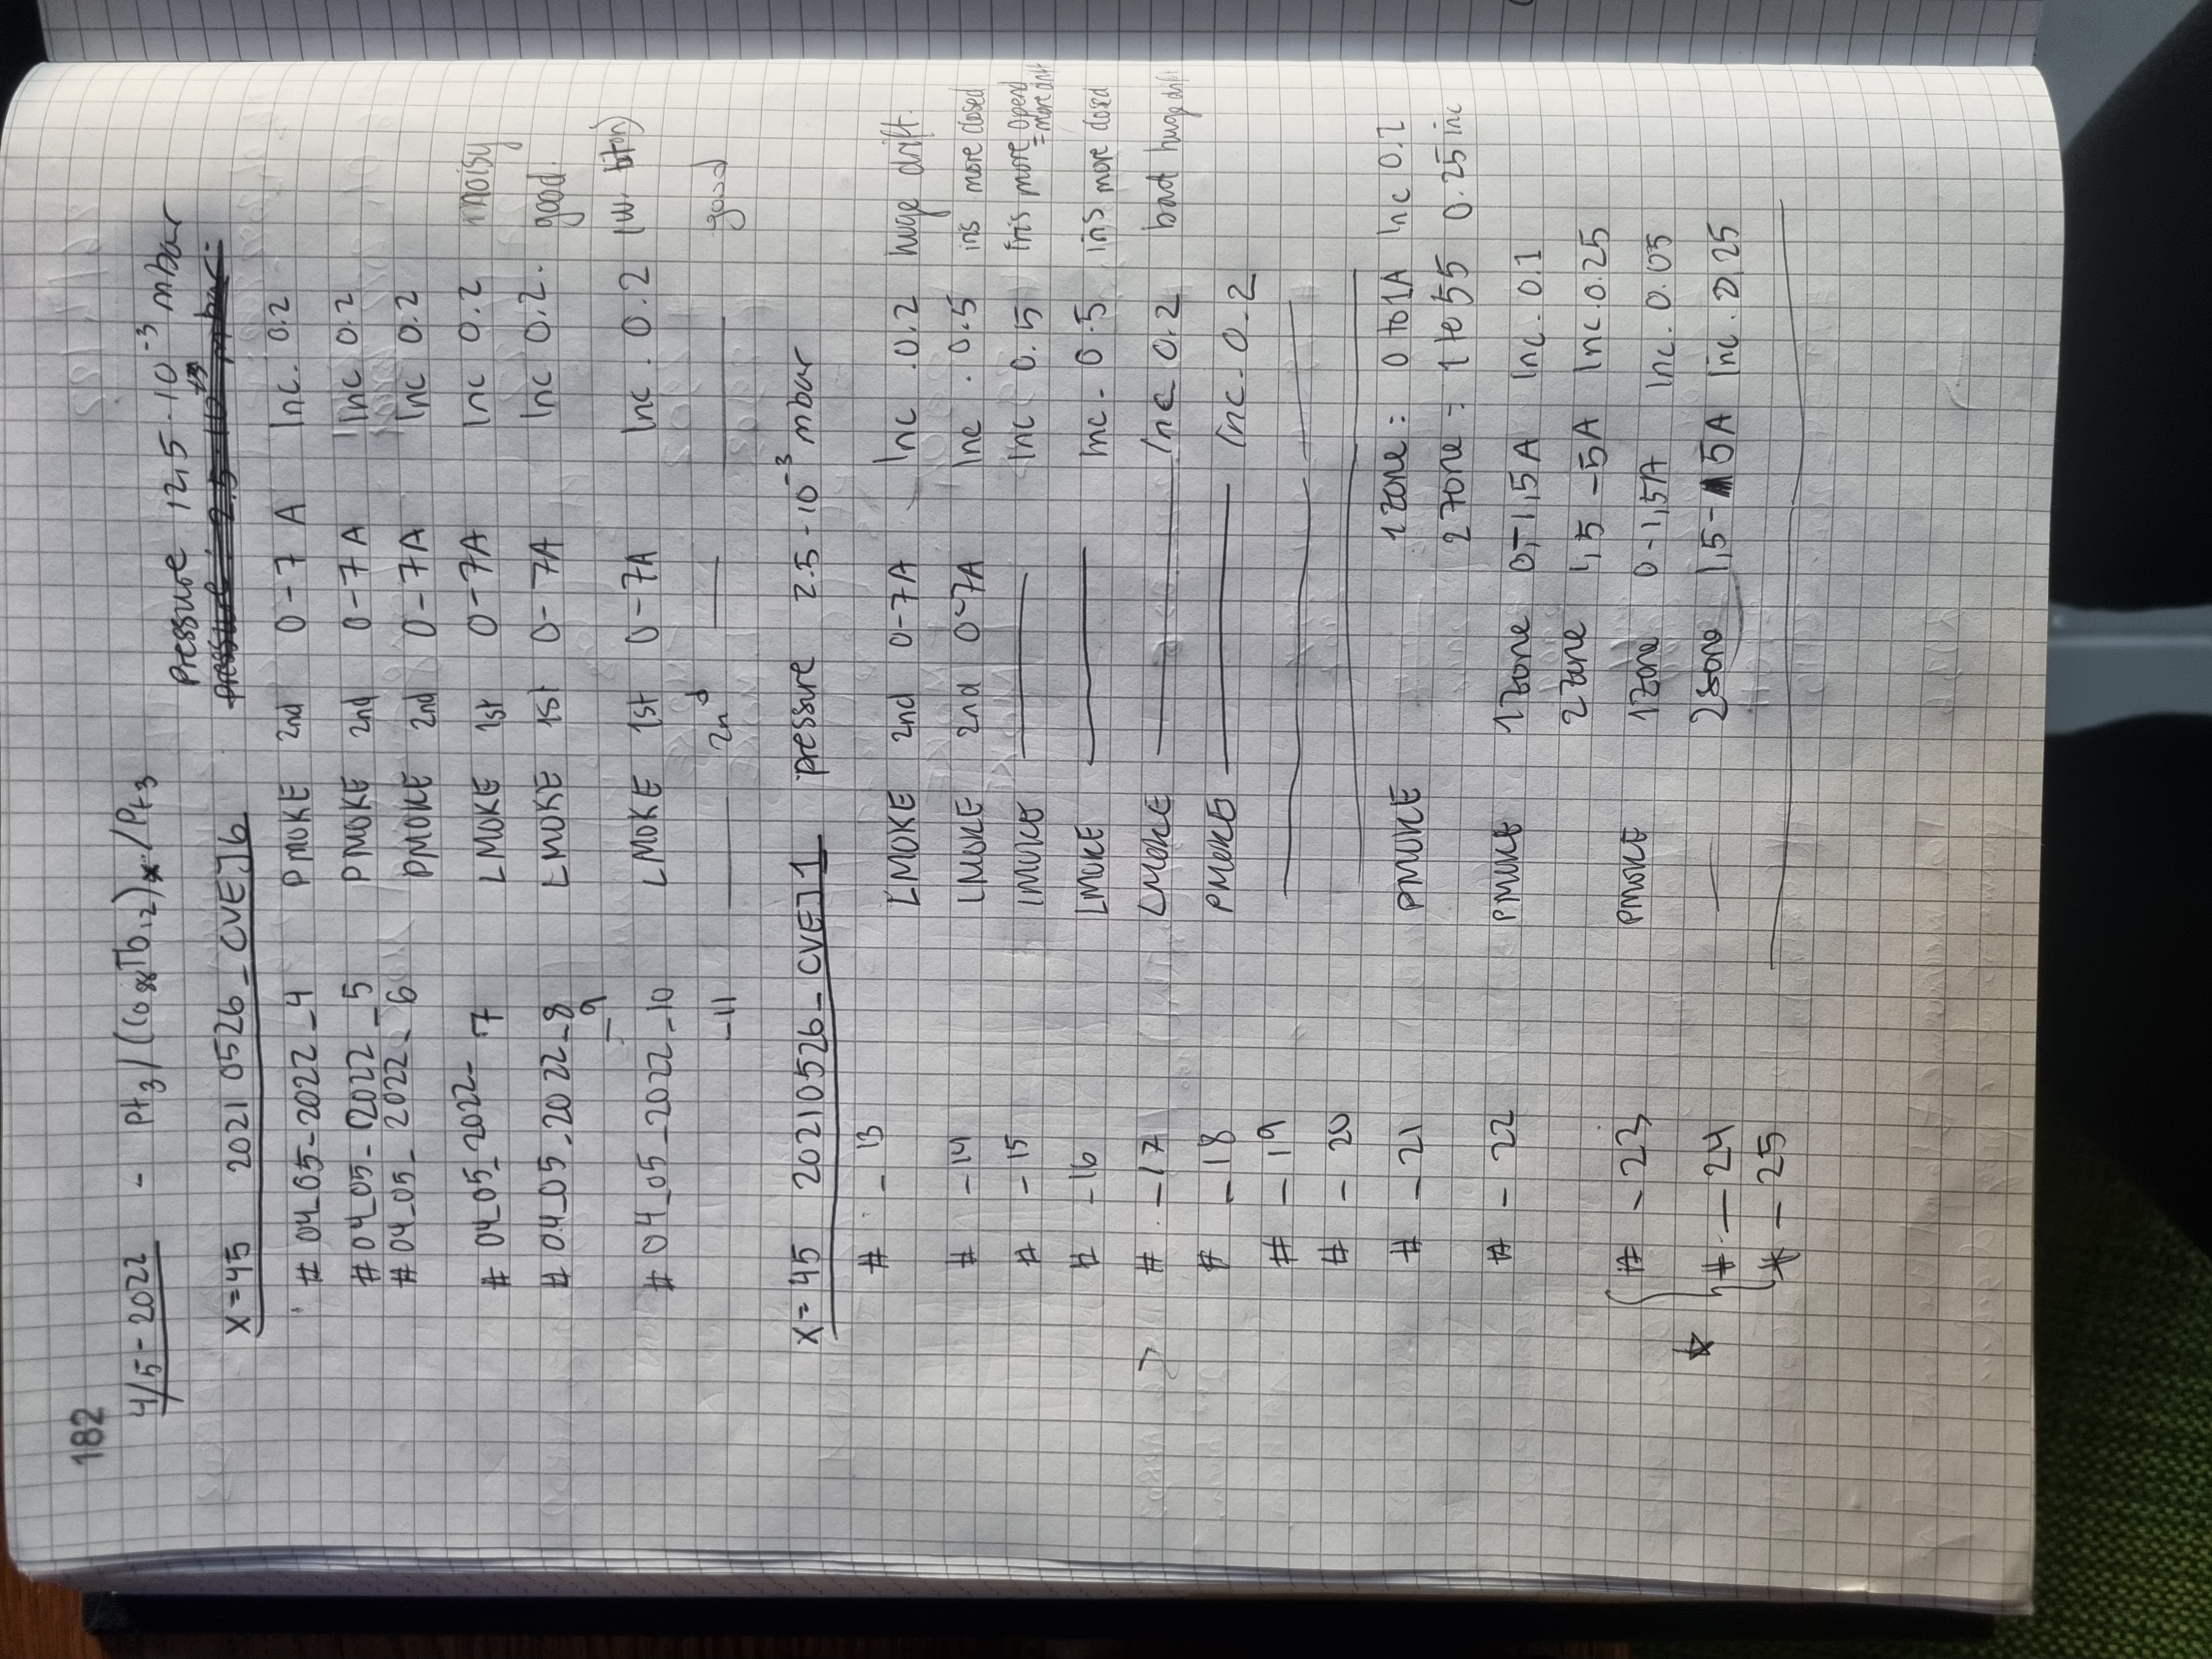 182
4/5-2022 - Pt3/(Co88Tb12)x/Pt3
Pressure 12,5·10^-3 mbar
X=45 20210526_CVEJ6 pressure: 2.5 mbar
# 04_05-2022_4 PMOKE 2nd 0-7 A Inc. 0.2
# 04_05-2022_5 PMOKE 2nd 0-7A Inc 0.2
# 04_05_2022-6 PMOKE 2nd 0-7A Inc 0.2
# 04_05_2022-7 LMOKE 1st 0-7A Inc 0.2 noisy
# 04_05_2022_8 LMOKE 1st 0-7A Inc 0.2. good
_9
# 04_05_2022_10 LMOKE 1st 0-7A Inc. 0.2 (w.
-11 —— 2nd —— —— good
X=45 20210526_CVEJ1 pressure 2.5·10^-3 mbar
# _ 13 LMOKE 2nd 0-7A Inc .0.2 huge drift.
# -14 LMOKE 2nd 0-7A Inc . 0.5 iris more closed
# -15 LMOKE —— Inc 0.5 Iris more opend
= more drift
# -16 LMOKE —— Inc. 0.5 iris more closed
> # -17 LMOKE —— Inc 0.2 bad huge drift
# _18 PMOKE —— Inc. 0.2
# - 19 —— ——
# - 20 ——
# - 21 PMOKE 1 zone: 0 to 1A Inc 0.2
2 zone = 1 to 55 0.25 inc
# - 22 PMOKE 1 zone 0-1,5A Inc. 0.1
2 zone 1,5-5A Inc. 0.25
# - 23 PMOKE 1 zone 0-1,5A Inc. 0.05
☆ # - 24 —— 2 sone 1,5-5A Inc. 0,25
# - 25 ——